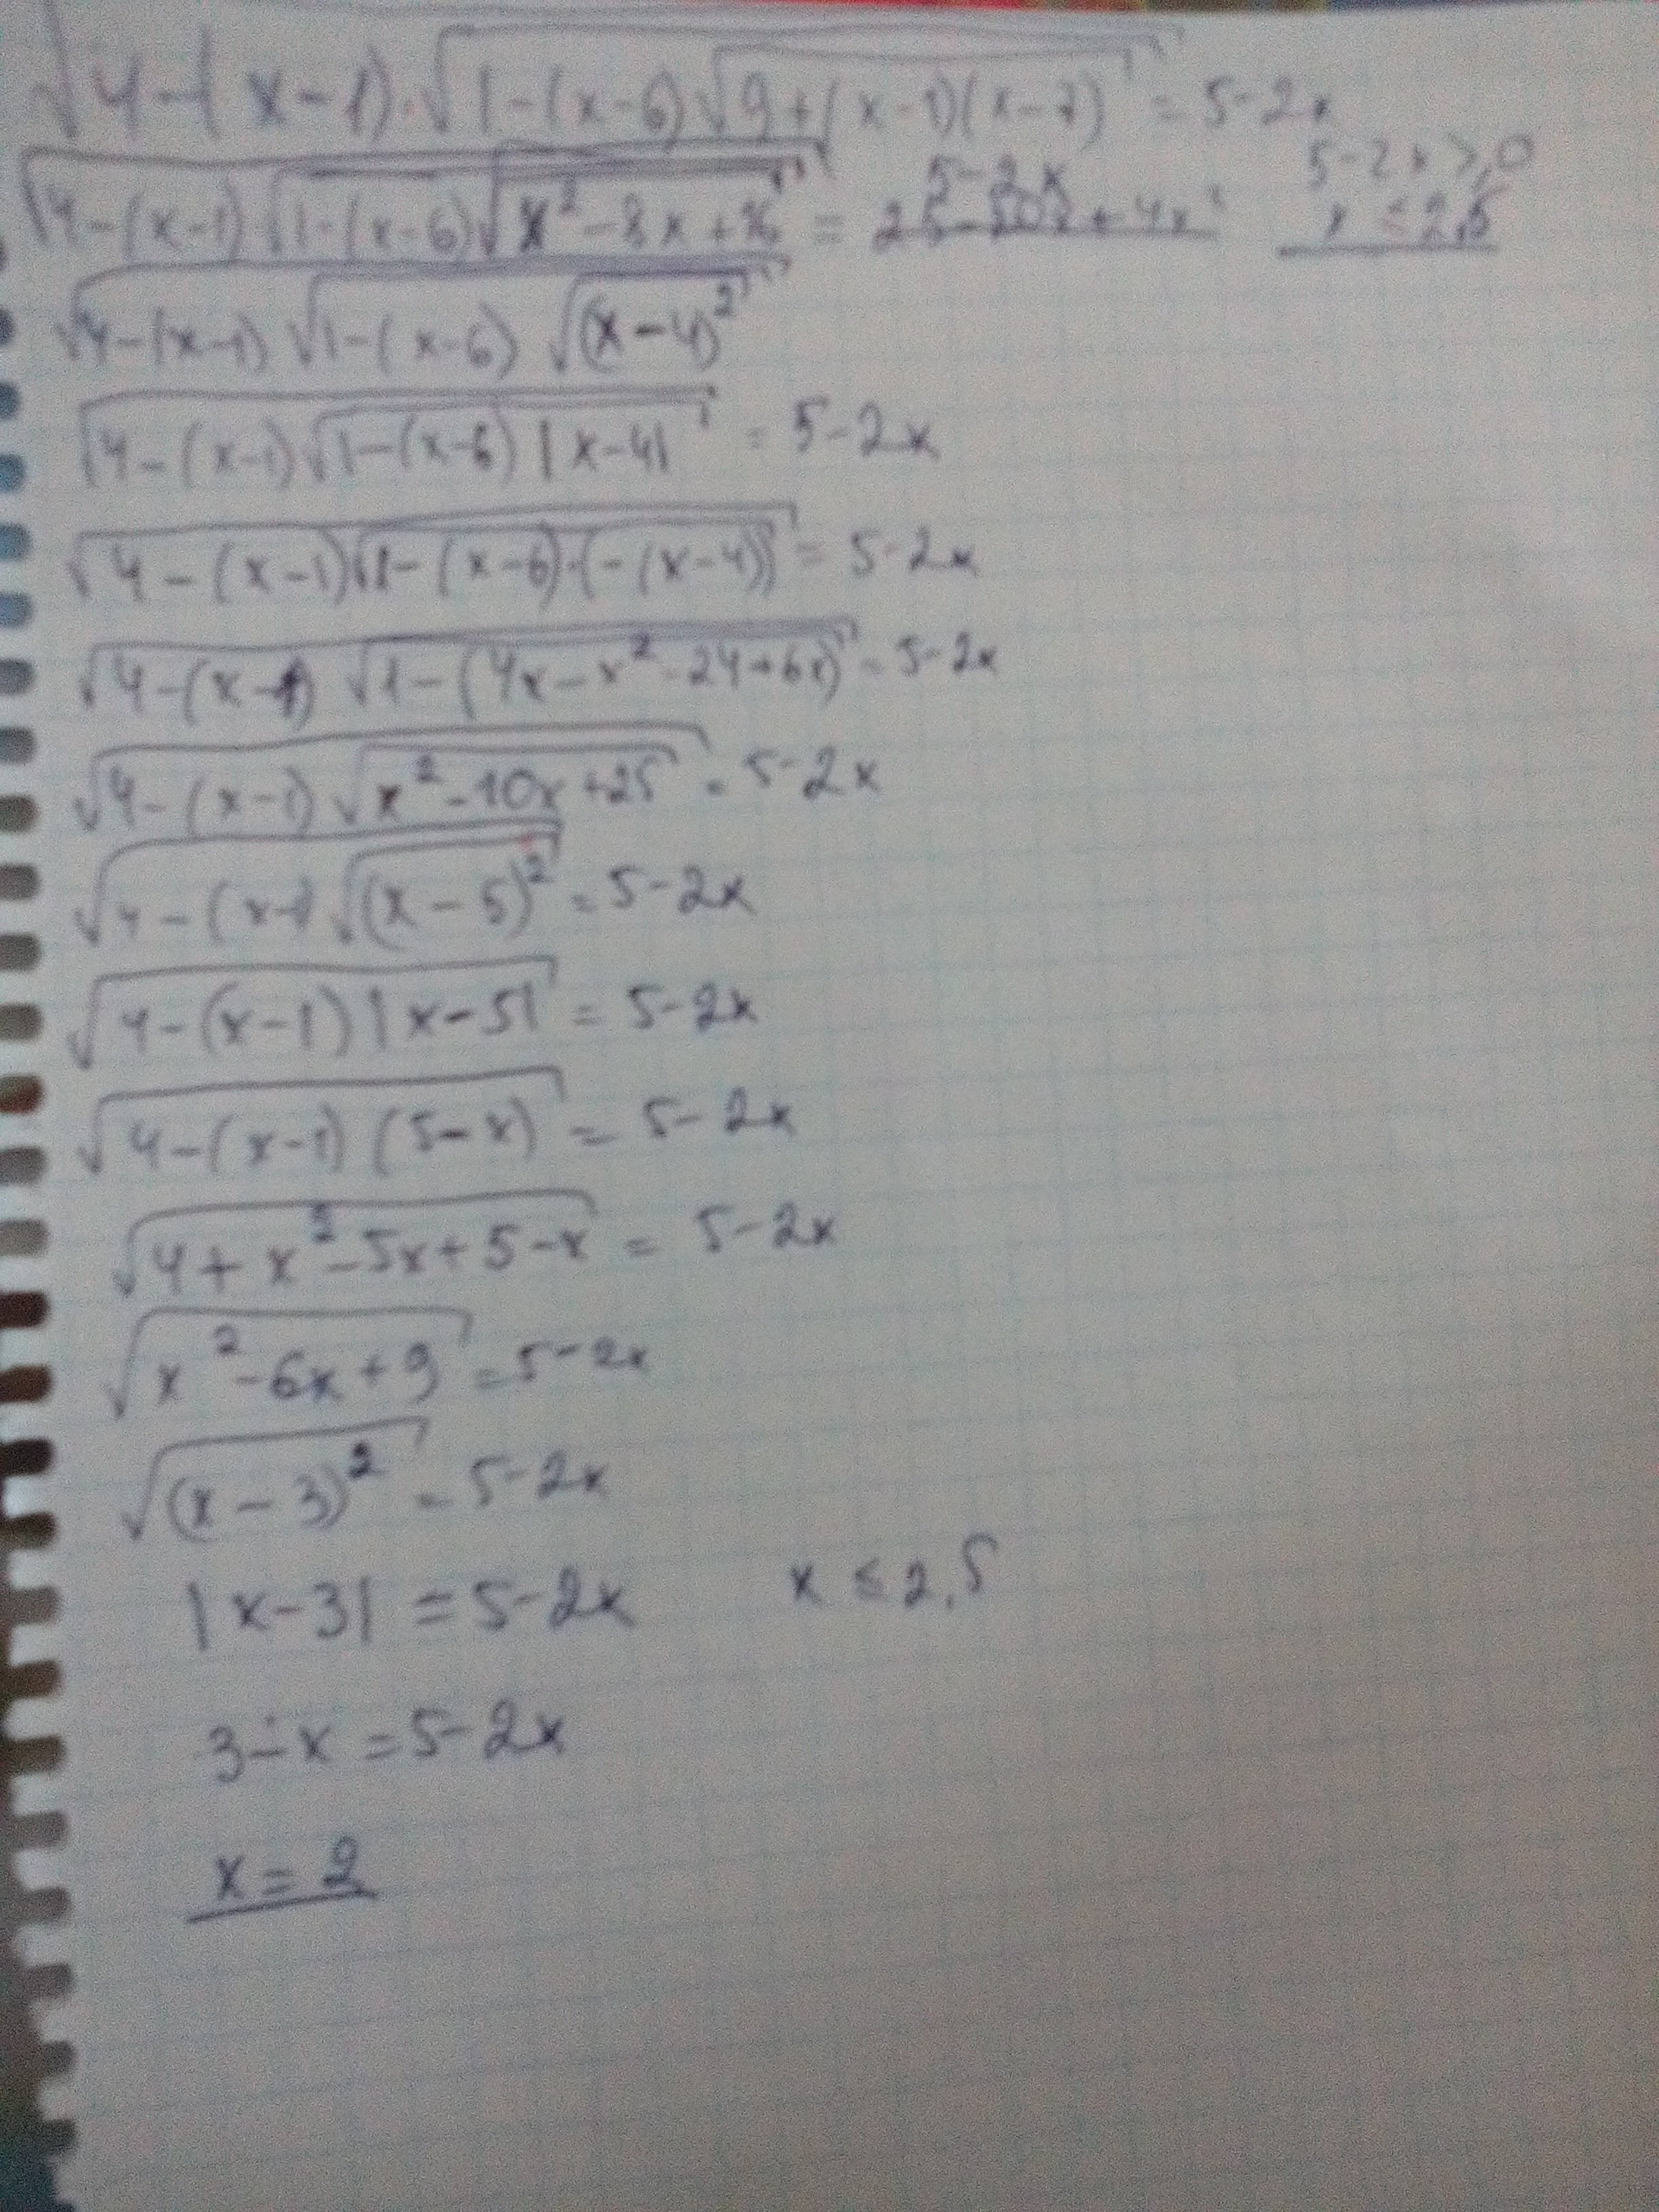 √(4-(x-1)·√(1-(x-6)√(9+(x-1)(x-7)))) = 5-2x
5-2x≥0
√(4-(x-1)√(1-(x-6)√(x²-8x+16))) = 5-2x x≤2,5
√(4-(x-1)√(1-(x-6)√((x-4)²)))
√(4-(x-1)√(1-(x-6)|x-4|)) = 5-2x
√(4-(x-1)√(1-(x-6)·(-(x-4)))) = 5-2x
√(4-(x-1)√(1-(4x-x²-24+6x))) = 5-2x
√(4-(x-1)√(x²-10x+25)) = 5-2x
√(4-(x-1)√((x-5)²)) = 5-2x
√(4-(x-1)|x-5|) = 5-2x
√(4-(x-1)(5-x)) = 5-2x
√(4+x²-5x+5-x) = 5-2x
√(x²-6x+9) = 5-2x
√((x-3)²) = 5-2x
|x-3| = 5-2x x≤2,5
3-x = 5-2x
x = 2